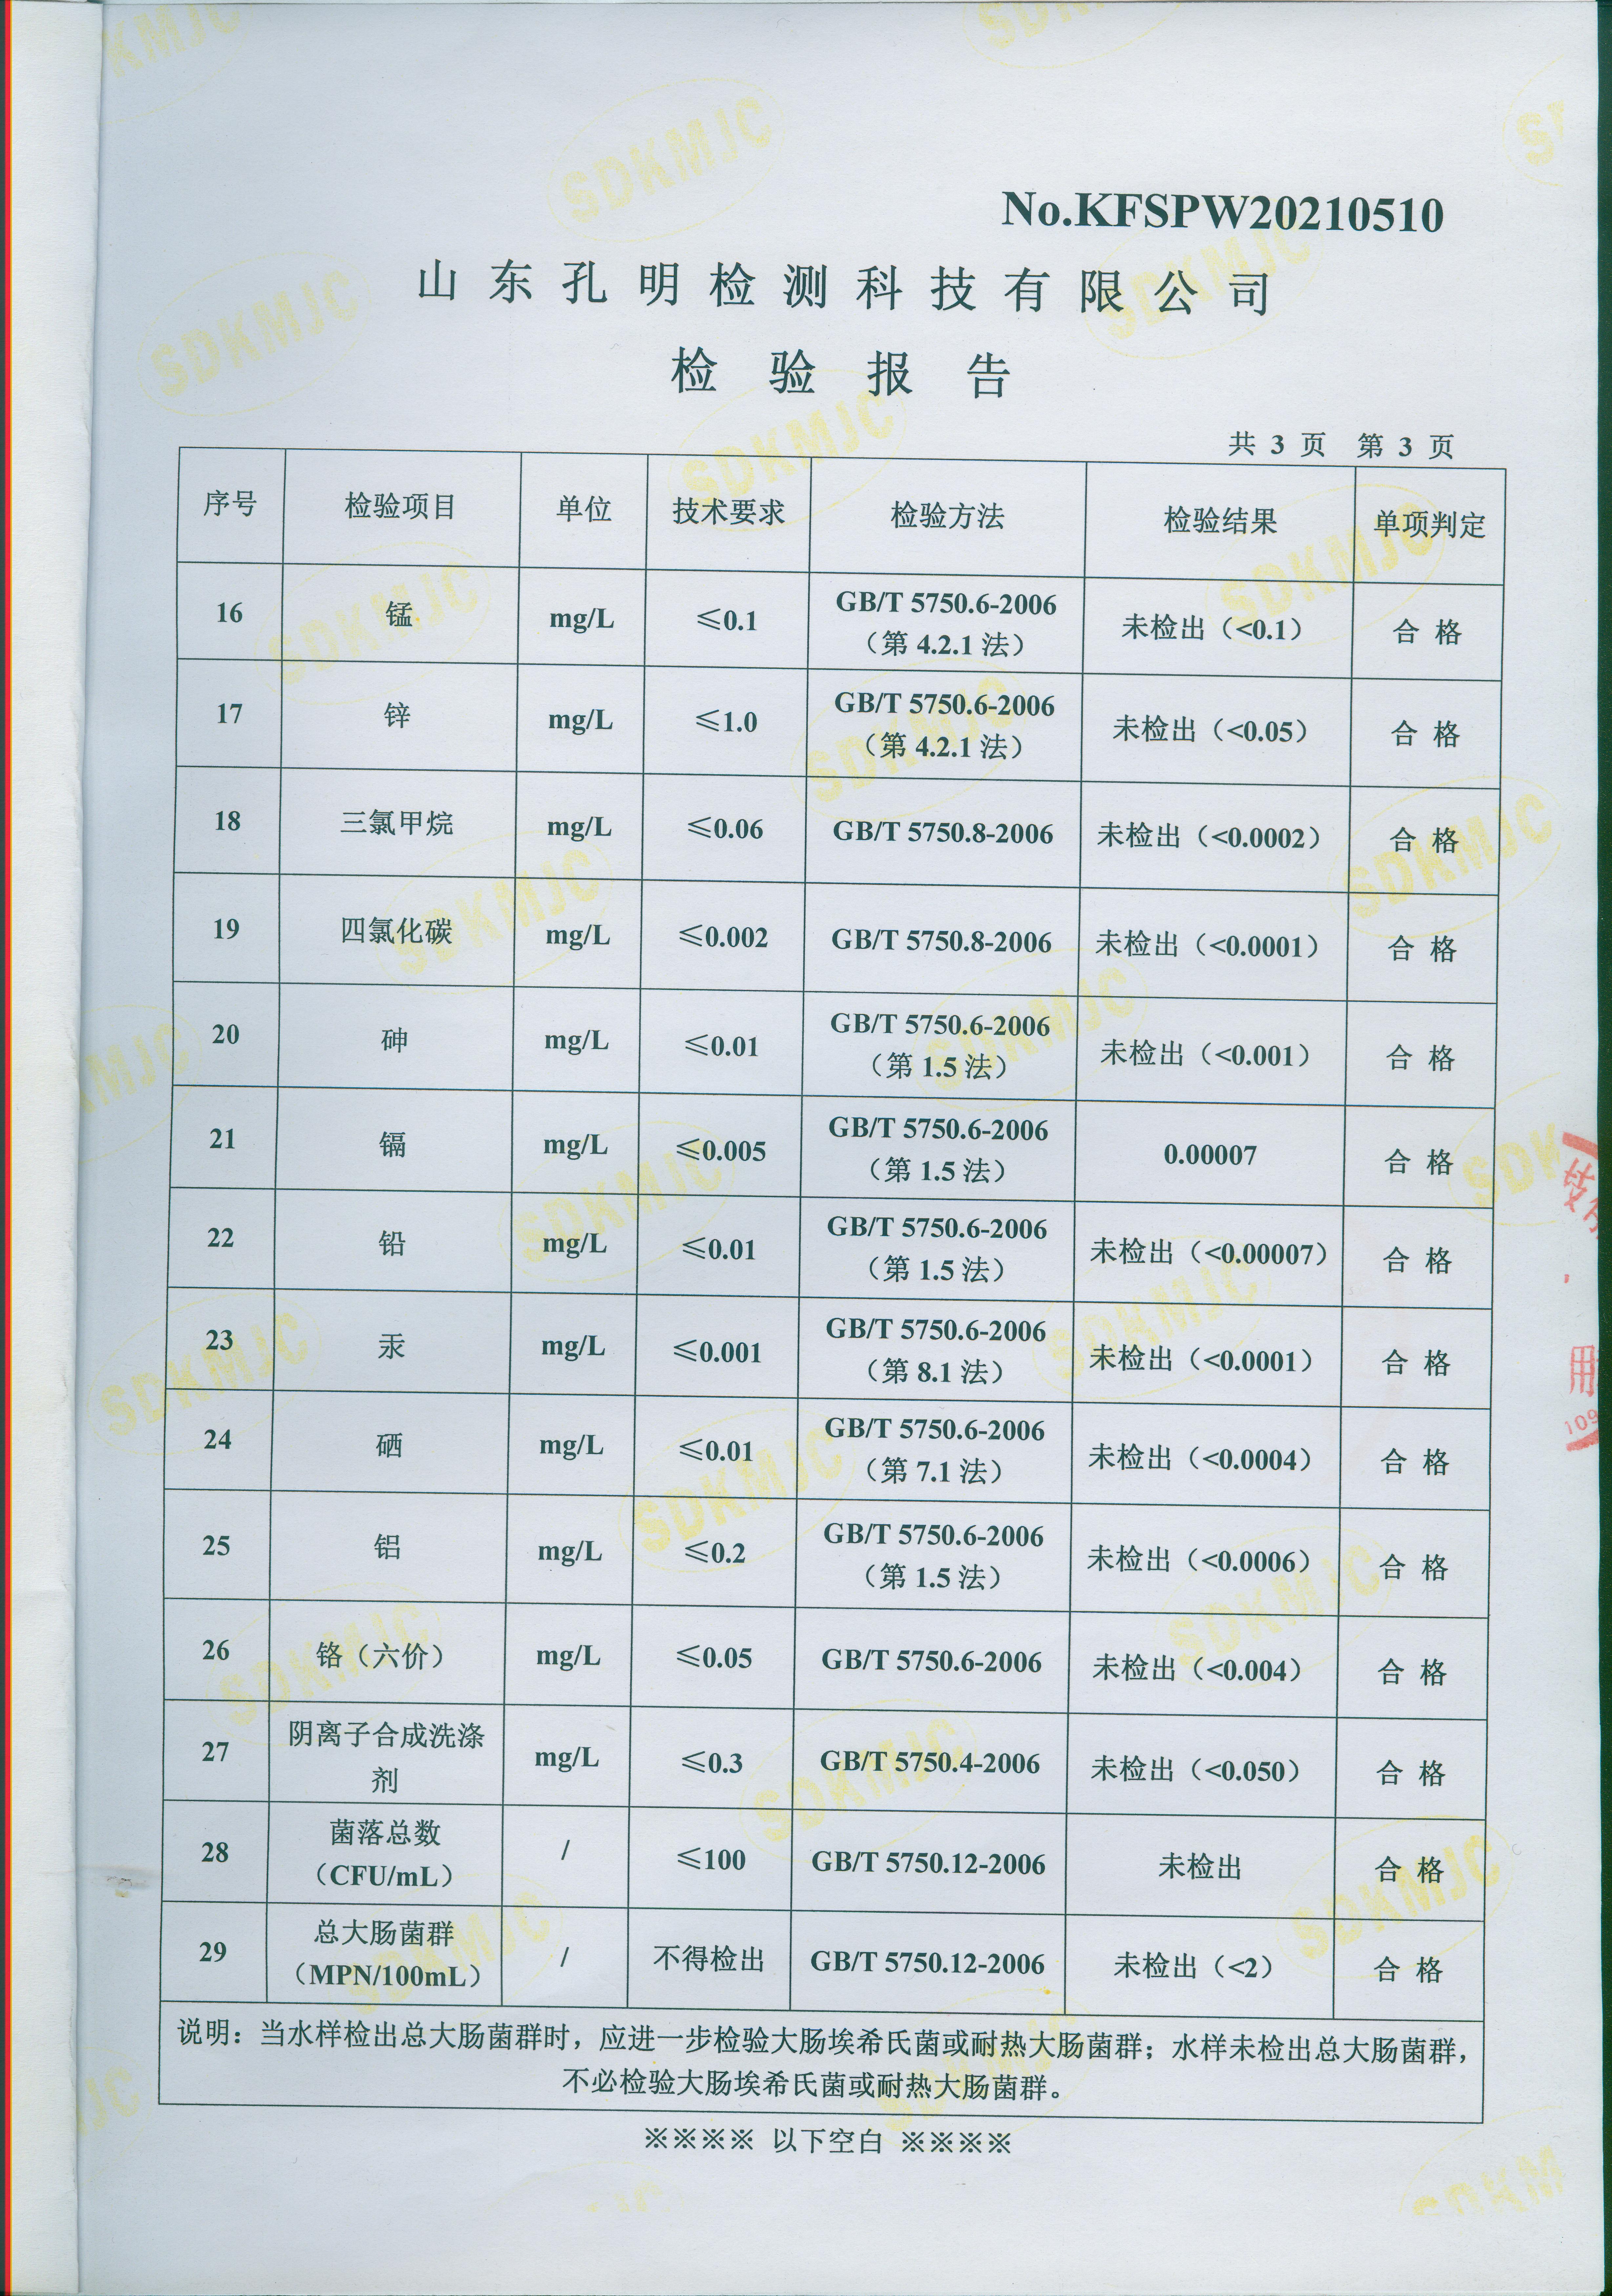 No.KFSPW20210510
山东孔明检测科技有限公司
检验报告
共 3 页 第 3 页
序号 检验项目 单位 技术要求 检验方法 检验结果 单项判定
16 锰 mg/L ≤0.1 GB/T 5750.6-2006 （第 4.2.1 法） 未检出（<0.1） 合格
17 锌 mg/L ≤1.0 GB/T 5750.6-2006 （第 4.2.1 法） 未检出（<0.05） 合格
18 三氯甲烷 mg/L ≤0.06 GB/T 5750.8-2006 未检出（<0.0002） 合格
19 四氯化碳 mg/L ≤0.002 GB/T 5750.8-2006 未检出（<0.0001） 合格
20 砷 mg/L ≤0.01 GB/T 5750.6-2006 （第 1.5 法） 未检出（<0.001） 合格
21 镉 mg/L ≤0.005 GB/T 5750.6-2006 （第 1.5 法） 0.00007 合格
22 铅 mg/L ≤0.01 GB/T 5750.6-2006 （第 1.5 法） 未检出（<0.00007） 合格
23 汞 mg/L ≤0.001 GB/T 5750.6-2006 （第 8.1 法） 未检出（<0.0001） 合格
24 硒 mg/L ≤0.01 GB/T 5750.6-2006 （第 7.1 法） 未检出（<0.0004） 合格
25 铝 mg/L ≤0.2 GB/T 5750.6-2006 （第 1.5 法） 未检出（<0.0006） 合格
26 铬（六价） mg/L ≤0.05 GB/T 5750.6-2006 未检出（<0.004） 合格
27 阴离子合成洗涤剂 mg/L ≤0.3 GB/T 5750.4-2006 未检出（<0.050） 合格
28 菌落总数（CFU/mL） / ≤100 GB/T 5750.12-2006 未检出 合格
29 总大肠菌群（MPN/100mL） / 不得检出 GB/T 5750.12-2006 未检出（<2） 合格
说明：当水样检出总大肠菌群时，应进一步检验大肠埃希氏菌或耐热大肠菌群；水样未检出总大肠菌群，
不必检验大肠埃希氏菌或耐热大肠菌群。
※※※※ 以下空白 ※※※※
SDKMJC
用
109